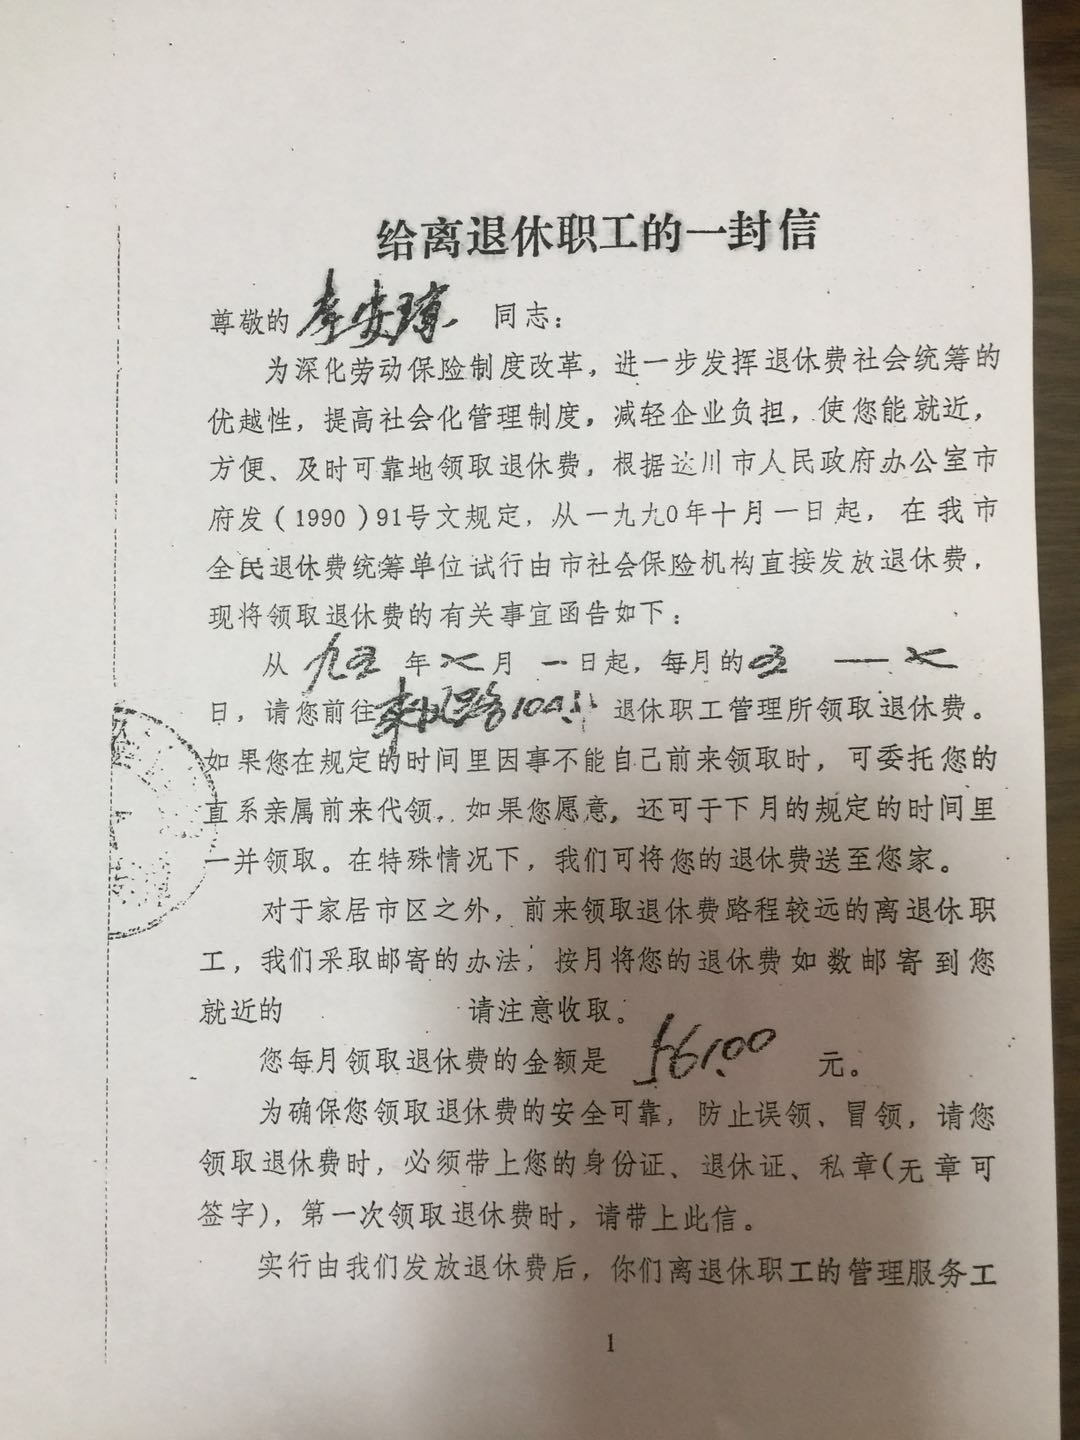 给离退休职工的一封信
尊敬的 李安琼 同志：
为深化劳动保险制度改革，进一步发挥退休费社会统筹的
优越性，提高社会化管理制度，减轻企业负担，使您能就近，
方便、及时可靠地领取退休费，根据达川市人民政府办公室市
府发（1990）91号文规定，从一九九0年十月一日起，在我市
全民退休费统筹单位试行由市社会保险机构直接发放退休费，
现将领取退休费的有关事宜函告如下：
从 九五 年 七 月 一日起，每月的 五 —— 七
日，请您前往 退休职工管理所领取退休费。
如果您在规定的时间里因事不能自己前来领取时，可委托您的
直系亲属前来代领。如果您愿意，还可于下月的规定的时间里
一并领取。在特殊情况下，我们可将您的退休费送至您家。
对于家居市区之外，前来领取退休费路程较远的离退休职
工，我们采取邮寄的办法，按月将您的退休费如数邮寄到您
就近的 请注意收取。
您每月领取退休费的金额是 161.00 元。
为确保您领取退休费的安全可靠，防止误领、冒领，请您
领取退休费时，必须带上您的身份证、退休证、私章(无章可
签字)，第一次领取退休费时，请带上此信。
实行由我们发放退休费后，你们离退休职工的管理服务工
1